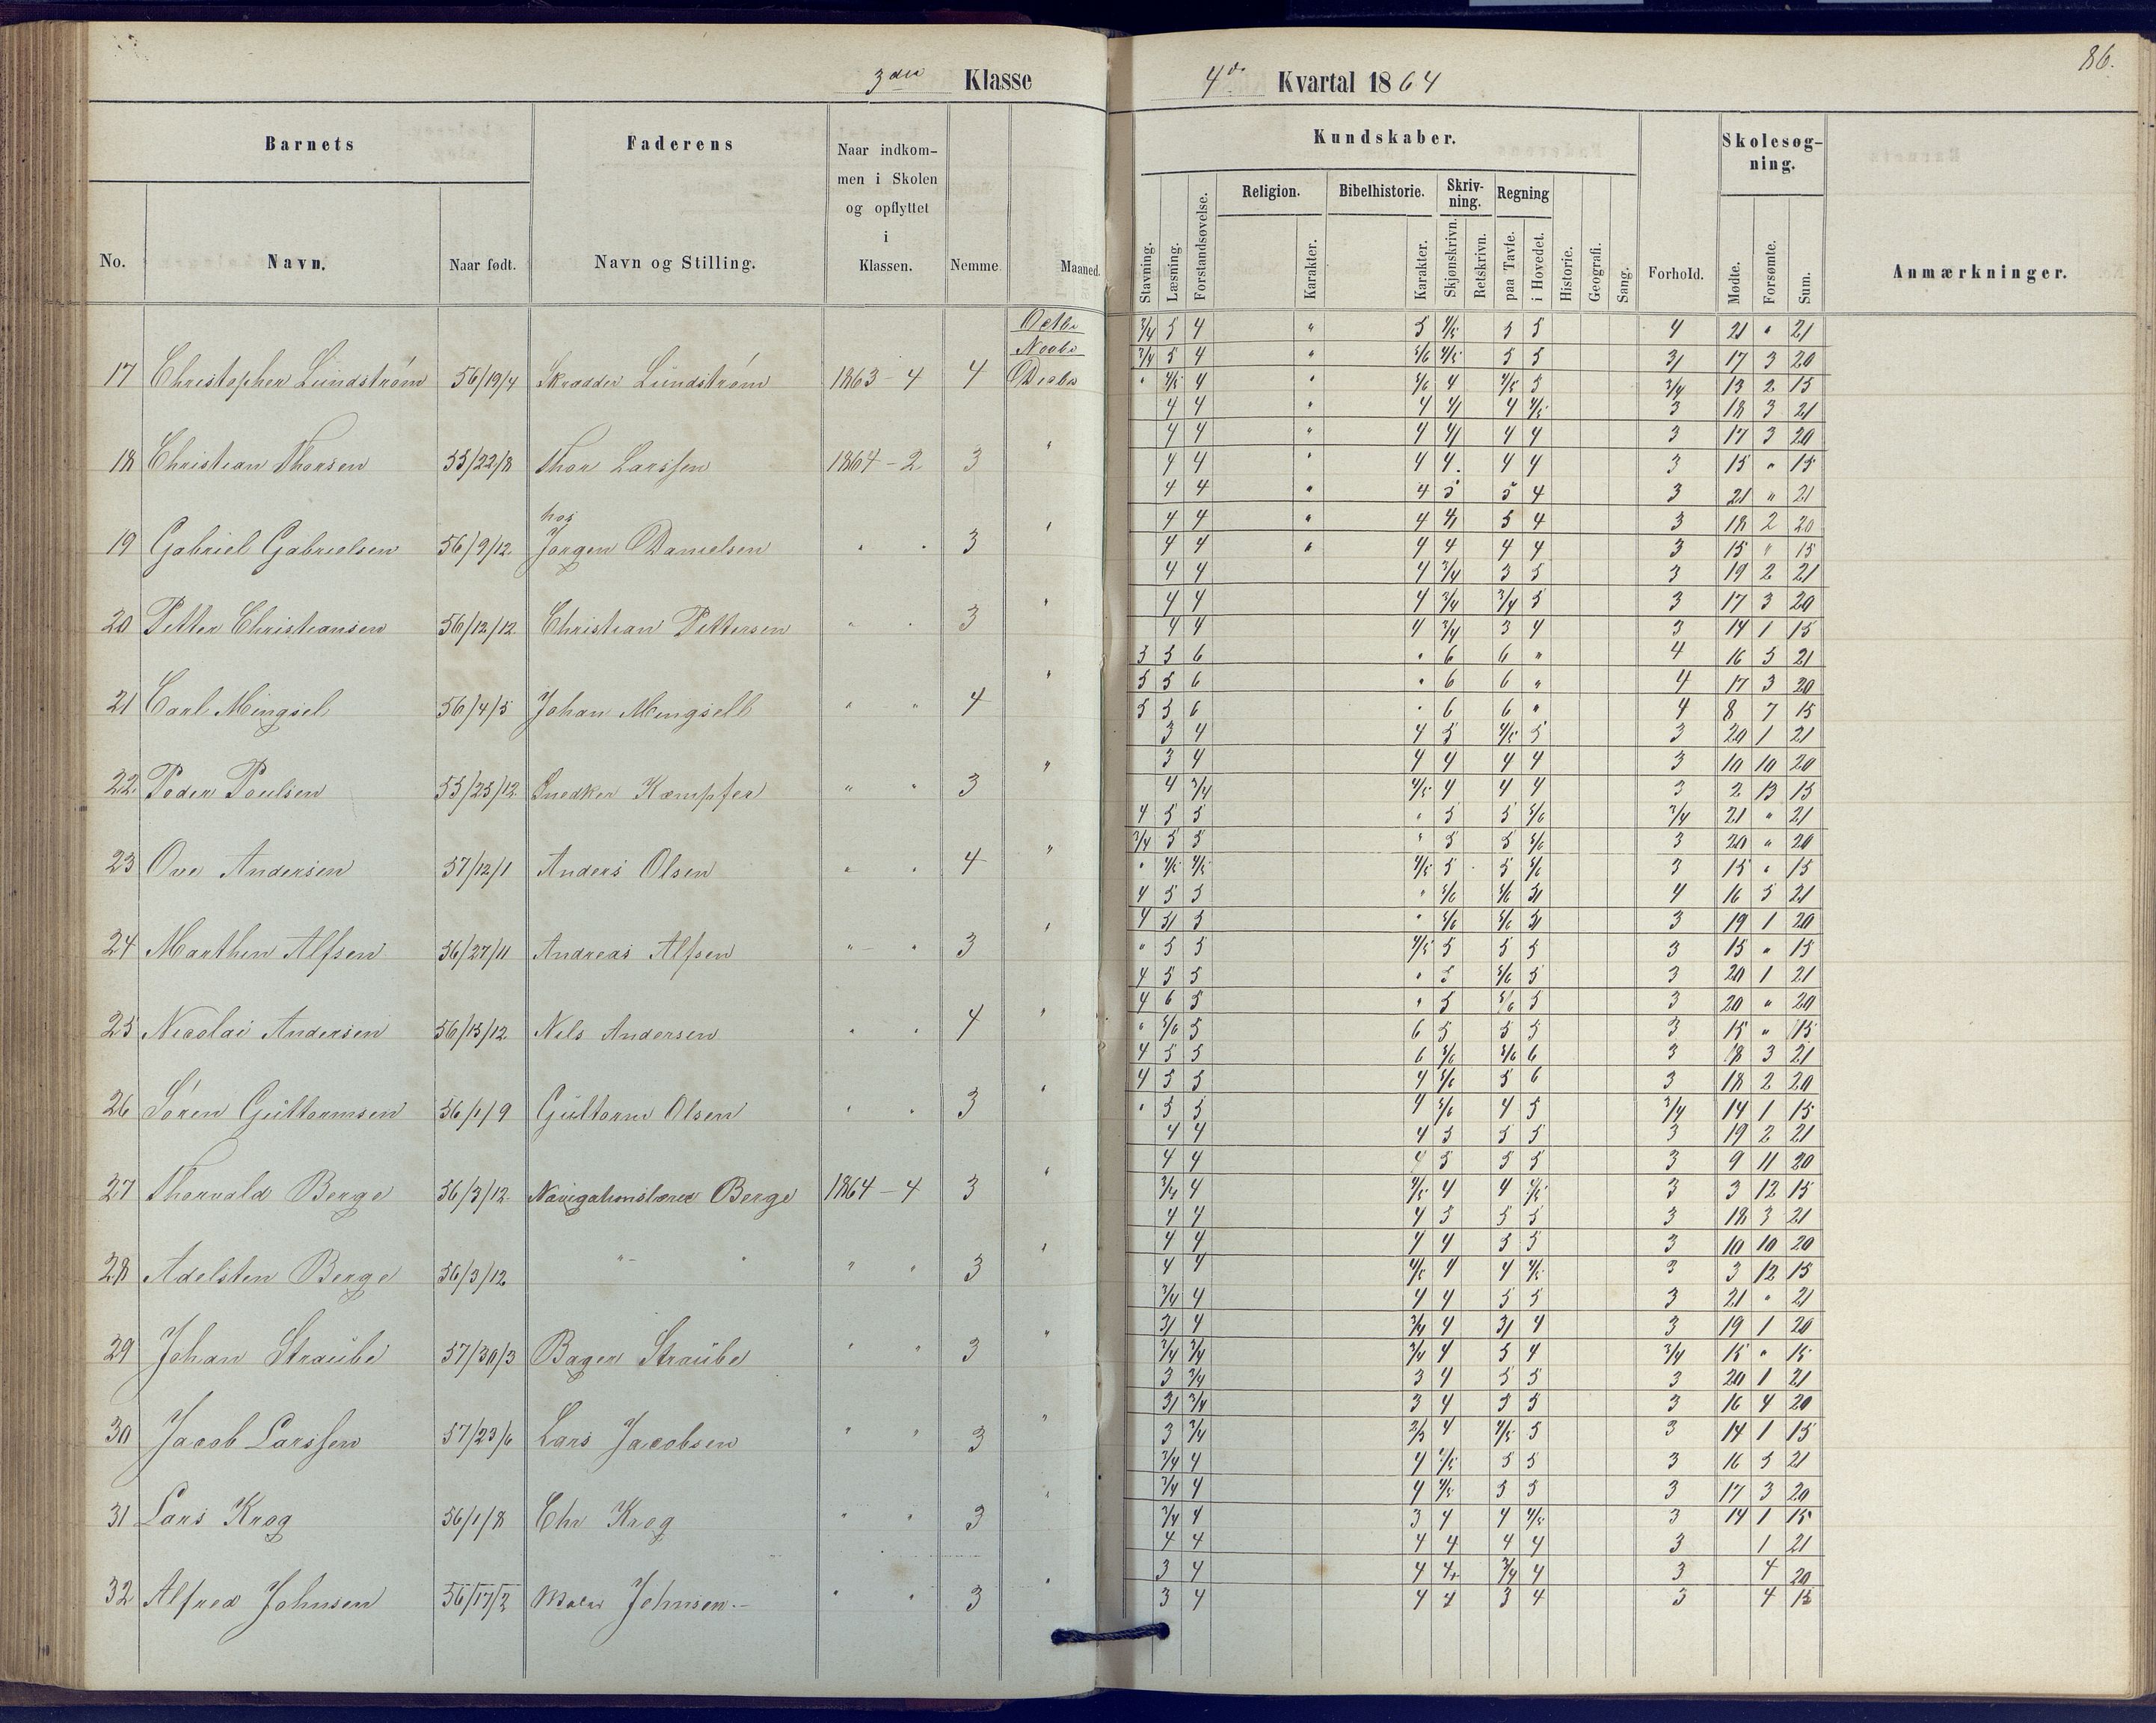 3die Klasse
4de Kvartal 1864
86.
Barnets
Faderens
Naar indkommen i Skolen og opflyttet i Klassen.
Nemme
Maaned.
No.
Navn.
Naar født.
Navn og Stilling.
Kundskaber.
Religion. Bibelhistorie. Skrivning. Regning
Stavning. Læsning. Forstandsøvelse. Karakter. Karakter. Skjønskrivn. Retskrivn. paa Tavle. i Hovedet. Historie. Geografi. Sang.
Forhold.
Skolesøgning.
Mødte. Forsømte. Sum.
Anmærkninger.
Octbr
Novbr
17 Christopher Lundstrøm 56/19/4 Skrædder Lundstrøm 1863 - 4 4 Decbr
3/4 5 4 " 5 4/5 5 5 4 21 " 21
3/4 5 4 " 5/6 4/5 5 5 3 17 3 20
" 4/5 4 " 5/6 4 4/5 5 3/4 13 2 15
18 Christian Thorsen 55/22/8 Thor Larssen 1864 - 2 3 "
4 4 " 4 4 4 4/5 3 18 3 21
4 4 " 4 4 4 4 3 17 3 20
4 4 " 4 4 4 4 3 15 " 15
hos
19 Gabriel Gabrielsen 56/9/12 Jørgen Danielsen " " 3 "
4 4 " 4 5 5 4 3 21 " 21
4 4 " 4 4 5 4 3 18 2 20
4 4 " 4 4 4 4 3 15 " 15
20 Petter Christiansen 56/12/12 Christian Pettersen " " 3 "
4 4 4 3/4 3 5 3 19 2 21
4 4 4 3/4 3/4 5 3 17 3 20
4 4 4 3/4 3 4 3 14 1 15
21 Carl Mingsel 56/4/5 Johan Mingsell " " 4 "
5 5 6 " 6 6 " 4 16 5 21
5 5 6 " 6 6 " 4 17 3 20
5 5 6 " 6 6 " 4 8 7 15
22 Peder Poulsen 55/25/12 Snedker Kæmpfer " " 3 "
3 4 4 5 4/5 5 3 20 1 21
3 4 4 4 4 4 3 10 10 20
4 3/4 4/5 4 4 4 3 2 13 15
23 Ove Andersen 57/12/1 Anders Olsen " " 4 "
4 5 5 " 5 5 5/6 3/4 21 " 21
3/4 5 5 " 5 5 5/6 3 20 " 20
" 4/5 4/5 4/5 5 5 5/6 3 15 " 15
24 Marthin Alfsen 56/27/11 Andreas Alfsen " " 3 "
4 5 5 " 5/6 5/6 5 4 16 5 21
4 5 5 " 5/6 5/6 5 3 19 1 20
" 5 5 4/5 5 5 5 3 15 " 15
25 Nicolai Andersen 56/15/12 Nils Andersen " " 4 "
4 5 5 " 5 5/6 5 3 20 1 21
4 6 5 " 5 5/6 5 3 20 " 20
" 5/6 5 6 5 5 5 3 15 " 15
26 Søren Guttormsen 56/1/9 Guttorm Olsen " " 3 "
4 5 5 6 5/6 5/6 6 3 18 3 21
4 5 5 4 5/6 5 6 3 18 2 20
" 5 5 4 5/6 4 5 3/4 14 1 15
27 Thorvald Berge 56/3/12 Navigationslærer Berge 1864 - 4 3 "
4 4 4 5 5 5 3 19 2 21
4 4 4 5 5 5 3 9 11 20
3/4 4 4/5 4 4 4/5 3 3 12 15
28 Adelsten Berge 56/3/12 " " " " 3 "
4 4 4 5 5 5 3 18 3 21
4 4 4 4 5 5 3 10 10 20
4 4 4/5 4 4 4/5 3 3 12 15
29 Johan Straube 57/30/3 Bager Straube " " 3 "
3/4 4 4 4 5 5 3 21 " 21
3 4 3/4 4 3 4 3 19 1 20
3/4 3/4 3/4 4 5 4 3/4 15 " 15
30 Jacob Larssen 57/23/6 Lars Jacobsen " " 3 "
3 3/4 3 4 5 5 3 20 1 21
3 3/4 3 4 5 5 3 16 4 20
3 3/4 2/3 4 4/5 5 3 14 1 15
31 Lars Krog 56/1/8 Chr Krog " " 3 "
3/4 4 4 4/5 5 5 3 16 5 21
3/4 4 4 4/5 5 5 3 17 3 20
3/4 4 3 4 4 4/5 3 14 1 15
32 Alfred Johnsen 56/17/2 Maler Johnsen.- " " 3 "
4 4 4 4 4 4 3 1 21
3 4 4 4 3/4 4 3 4 20
3 4 4 4 3 4 3 4 15